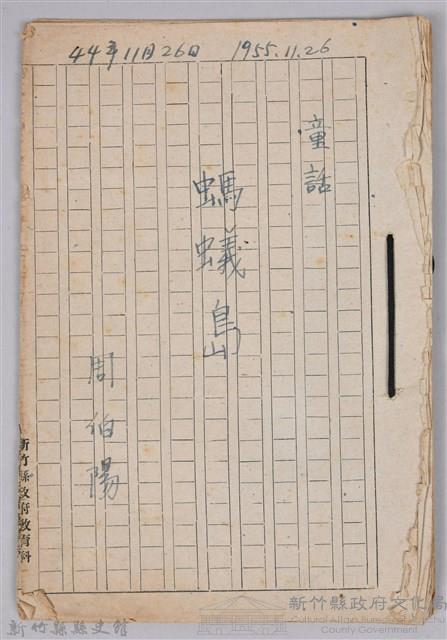 44年11月26日 1955.11.26
童話
螞蟻島
周伯陽
新竹縣政府教育科
新竹縣縣史館
新竹縣政府文化局
Cultural Affairs Bureau of Hsinchu
County Government